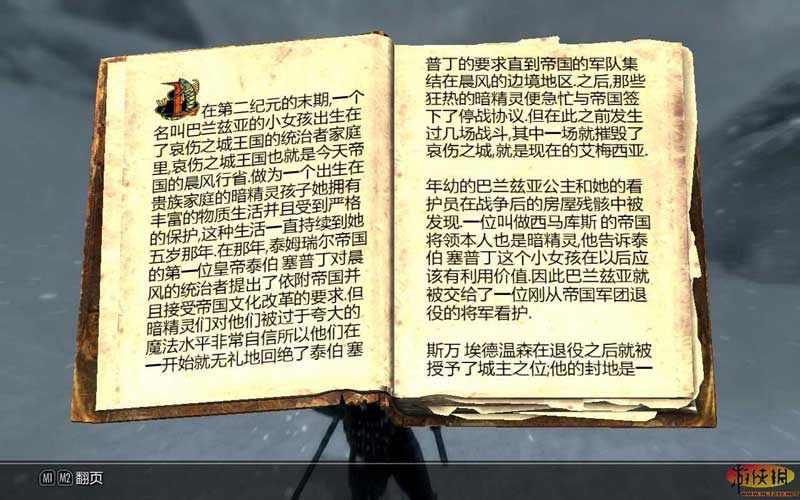 在第二纪元的末期,一个
名叫巴兰兹亚的小女孩出生在
了哀伤之城王国的统治者家庭
里,哀伤之城王国也就是今天帝
国的晨风行省.做为一个出生在
贵族家庭的暗精灵孩子她拥有
丰富的物质生活并且受到严格
的保护,这种生活一直持续到她
五岁那年.在那年,泰姆瑞尔帝国
的第一位皇帝泰伯 塞普丁对晨
风的统治者提出了依附帝国并
且接受帝国文化改革的要求.但
暗精灵们对他们被过于夸大的
魔法水平非常自信所以他们在
一开始就无礼地回绝了泰伯 塞
普丁的要求直到帝国的军队集
结在晨风的边境地区.之后,那些
狂热的暗精灵便急忙与帝国签
下了停战协议.但在此之前发生
过几场战斗,其中一场就摧毁了
哀伤之城,就是现在的艾梅西亚.
年幼的巴兰兹亚公主和她的看
护员在战争后的房屋残骸中被
发现.一位叫做西马库斯 的帝国
将领本人也是暗精灵,他告诉泰
伯 塞普丁这个小女孩在以后应
该有利用价值.因此巴兰兹亚就
被交给了一位刚从帝国军团退
役的将军看护.
斯万 埃德温森在退役之后就被
授予了城主之位;他的封地是一
M1 M2 翻页
游侠网